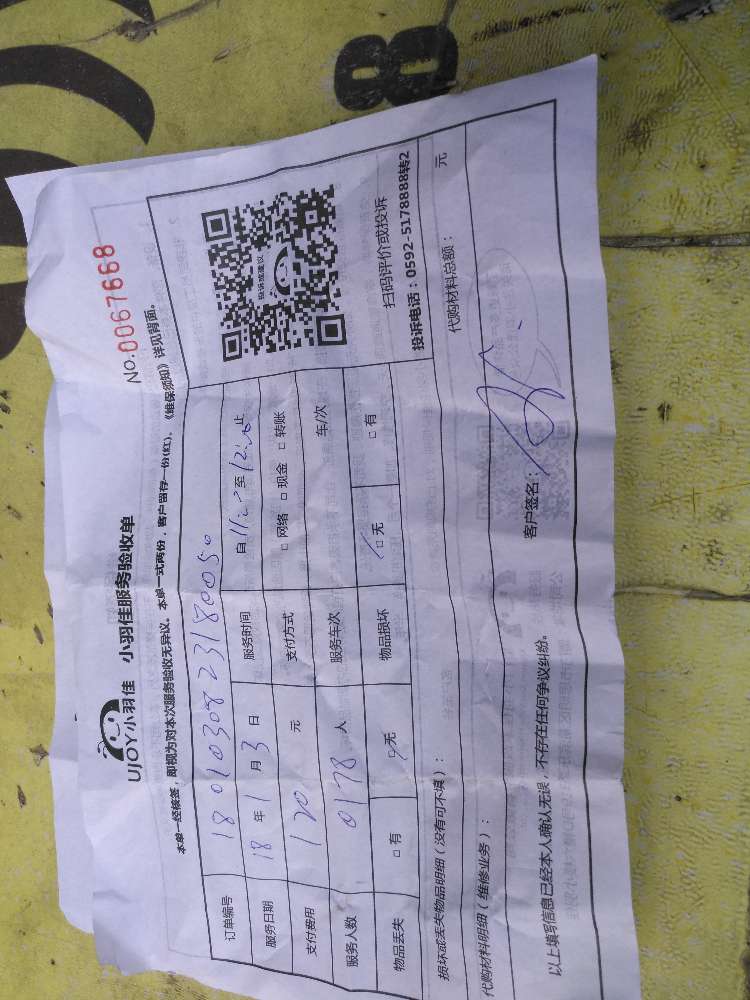 8
UJOY小羽佳 小羽佳服务验收单
No.0067668
本单一经核签，即视为对本次服务验收无异议。本单一式两份，客户留存一份(红)。《维保须知》详见背面。
订单编号 1801030823180050
服务日期 18年1月3日 服务时间 自11: 至12: 止
支付费用 120 元 支付方式 □网络 □现金 □转账
服务人数 0178 人 服务车次 车/次
物品丢失 □有 无 物品损坏 □无 □有
投诉或建议
扫码评价或投诉
投诉电话：0592-5178888转2
损坏或丢失物品明细（没有可不填）：
代购材料明细（维修业务）： 代购材料总额： 元
以上填写信息已经本人确认无误，不存在任何争议纠纷。 客户签名：